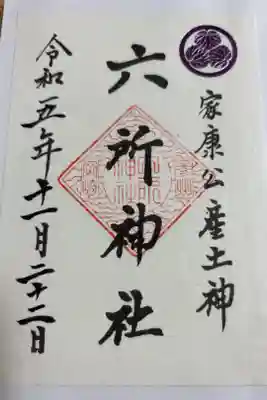 家康公産土神
六所神社
令和五年十一月二十二日